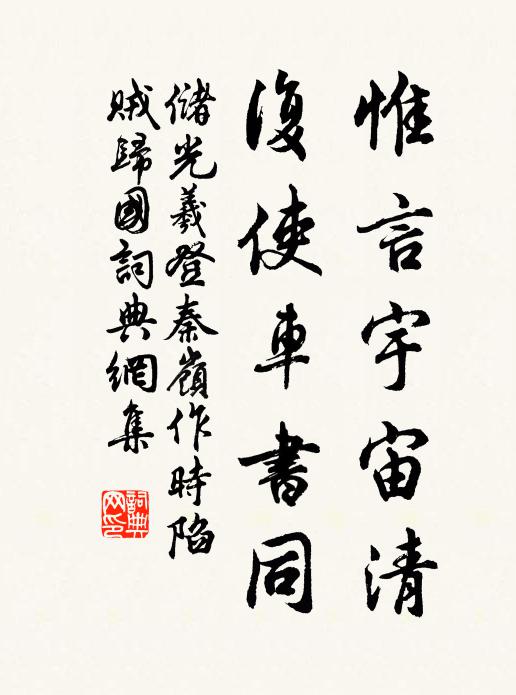 惟言宇宙清
復使車書同
儲光羲登秦嶺作時陷
賊歸國詞典網集
詞典
网印